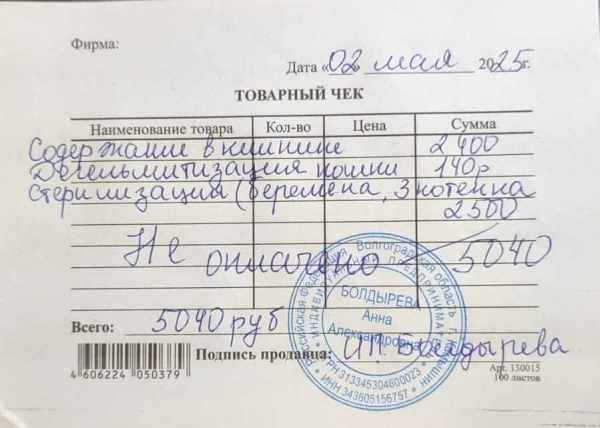 Фирма:
Дата «02» мая 2025г.
ТОВАРНЫЙ ЧЕК
Наименование товара Кол-во Цена Сумма
Содержание в клинике 2400
Дегельмитизация кошки 140р
стерилизация (беремена, 3 котенка
2500
Не оплачено 5040
Всего: 5040 руб
Подпись продавца: И.П. Болдырева
4 606224 050379
Арт. 130015
100 листов
Российская Федерация Волгоградская область г.
ИНДИВИДУАЛЬНЫЙ ПРЕДПРИНИМАТЕЛЬ
БОЛДЫРЕВА
Анна
Александровна
ОГРН 313345304600023
ИНН 343605156757